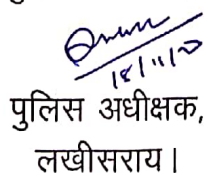 18/11/20
पुलिस अधीक्षक,
लखीसराय।